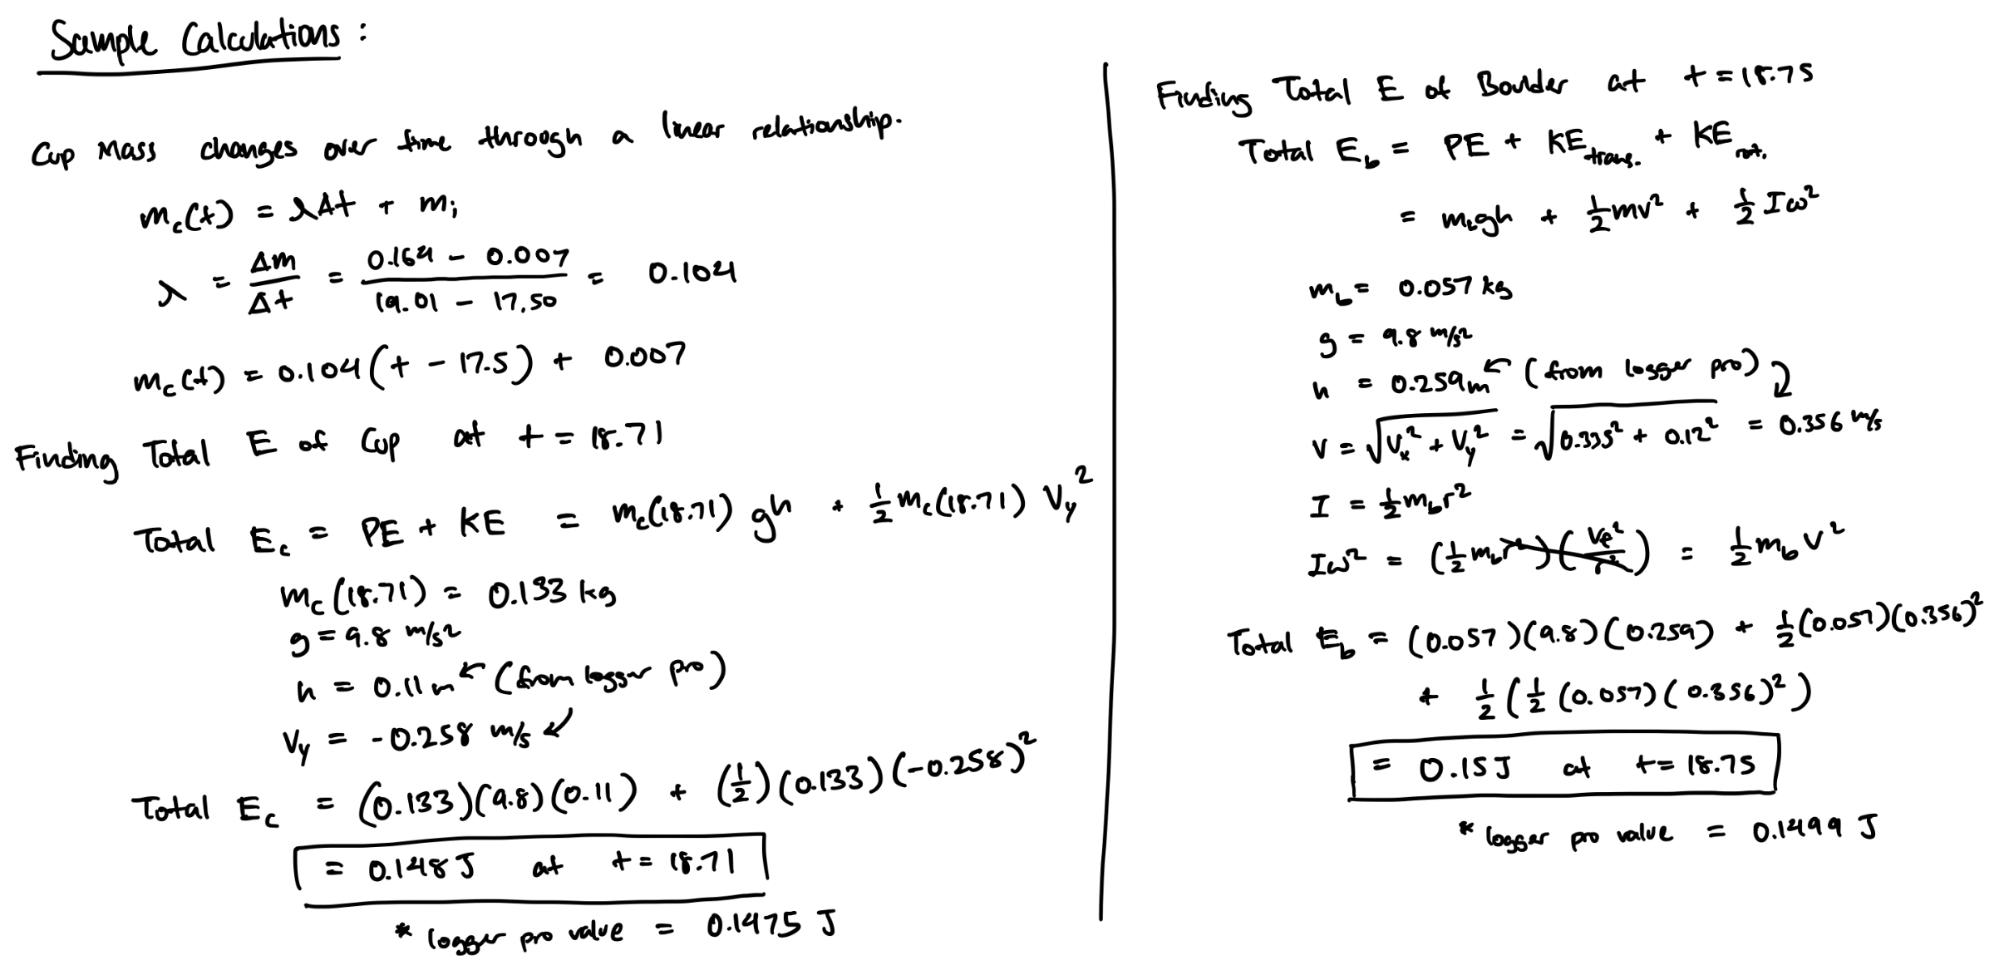 Sample Calculations :
Cup Mass changes over time through a linear relationship.
m_c(t) = λΔt + m_i
λ = Δm/Δt = (0.164 - 0.007)/(19.01 - 17.50) = 0.104
m_c(t) = 0.104(t - 17.5) + 0.007
Finding Total E of Cup at t = 18.71
Total E_c = PE + KE = m_c(18.71) gh + 1/2 m_c(18.71) V_y²
m_c(18.71) = 0.133 kg
g = 9.8 m/s²
h = 0.11 m ← (from logger pro)
V_y = -0.258 m/s ↙
Total E_c = (0.133)(9.8)(0.11) + (1/2)(0.133)(-0.258)²
= 0.148 J at t = 18.71
* logger pro value = 0.1475 J
Finding Total E of Boulder at t = 18.75
Total E_b = PE + KE_trans. + KE_rot.
= m_b gh + 1/2 mv² + 1/2 Iω²
m_b = 0.057 kg
g = 9.8 m/s²
h = 0.259 m ← (from logger pro)
V = √(V_x² + V_y²) = √(0.335² + 0.12²) = 0.356 m/s
I = 1/2 m_b r²
Iω² = (1/2 m_b r²)(V²/r²) = 1/2 m_b V²
Total E_b = (0.057)(9.8)(0.259) + 1/2 (0.057)(0.356)²
+ 1/2 (1/2 (0.057)(0.356)²)
= 0.15 J at t = 18.75
* logger pro value = 0.1499 J